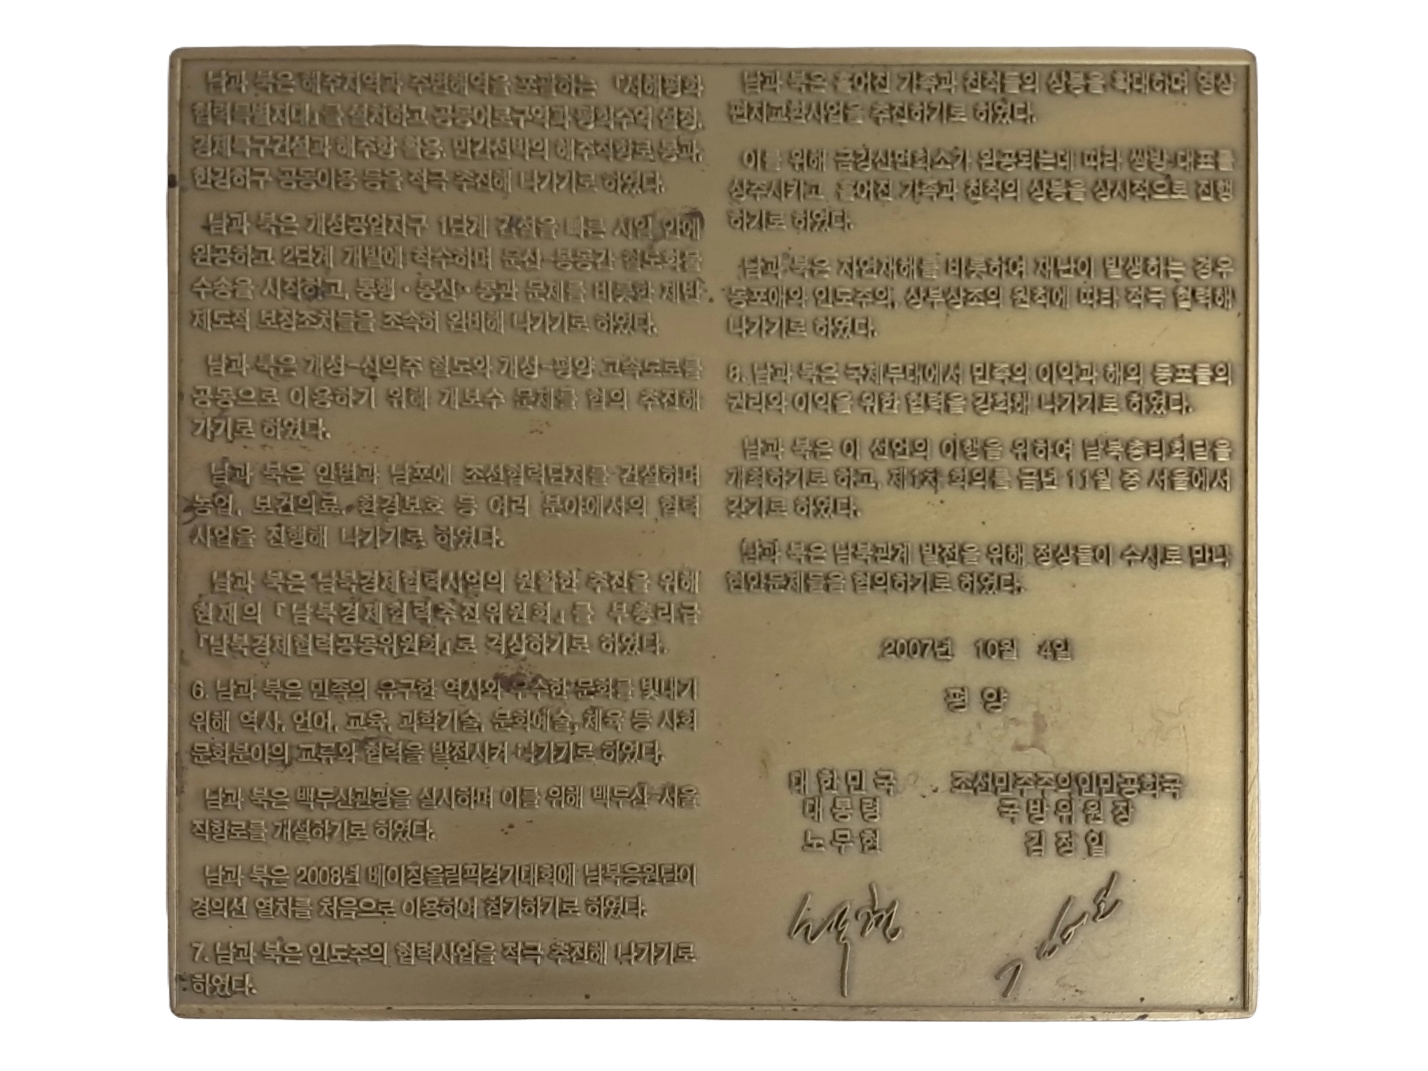 남과 북은 해주지역과 주변해역을 포괄하는 『서해평화
협력특별지대』를 설치하고 공동어로구역과 평화수역 설정,
경제특구건설과 해주항 활용, 민간선박의 해주직항로 통과,
한강하구 공동이용 등을 적극 추진해 나가기로 하였다.
남과 북은 개성공업지구 1단계 건설을 빠른 시일 안에
완공하고 2단계 개발에 착수하며 문산-봉동간 철도화물
수송을 시작하고, 통행·통신·통관 문제를 비롯한 제반
제도적 보장조치들을 조속히 완비해 나가기로 하였다.
남과 북은 개성-신의주 철도와 개성-평양 고속도로를
공동으로 이용하기 위해 개보수 문제를 협의 추진해
가기로 하였다.
남과 북은 안변과 남포에 조선협력단지를 건설하며
농업, 보건의료, 환경보호 등 여러 분야에서의 협력
사업을 진행해 나가기로 하였다.
남과 북은 남북경제협력사업의 원활한 추진을 위해
현재의 『남북경제협력추진위원회』를 부총리급
『남북경제협력공동위원회』로 격상하기로 하였다.
6. 남과 북은 민족의 유구한 역사와 우수한 문화를 빛내기
위해 역사, 언어, 교육, 과학기술, 문화예술, 체육 등 사회
문화분야의 교류와 협력을 발전시켜 나가기로 하였다.
남과 북은 백두산관광을 실시하며 이를 위해 백두산-서울
직항로를 개설하기로 하였다.
남과 북은 2008년 베이징올림픽경기대회에 남북응원단이
경의선 열차를 처음으로 이용하여 참가하기로 하였다.
7. 남과 북은 인도주의 협력사업을 적극 추진해 나가기로
하였다.
남과 북은 흩어진 가족과 친척들의 상봉을 확대하며 영상
편지교환사업을 추진하기로 하였다.
이를 위해 금강산면회소가 완공되는데 따라 쌍방 대표를
상주시키고, 흩어진 가족과 친척의 상봉을 상시적으로 진행
하기로 하였다.
남과 북은 자연재해를 비롯하여 재난이 발생하는 경우
동포애와 인도주의, 상부상조의 원칙에 따라 적극 협력해
나가기로 하였다.
8. 남과 북은 국제무대에서 민족의 이익과 해외 동포들의
권리와 이익을 위한 협력을 강화해 나가기로 하였다.
남과 북은 이 선언의 이행을 위하여 남북총리회담을
개최하기로 하고, 제1차 회의를 금년 11월 중 서울에서
갖기로 하였다.
남과 북은 남북관계 발전을 위해 정상들이 수시로 만나
현안문제들을 협의하기로 하였다.
2007년 10월 4일
평양
대한민국 조선민주주의인민공화국
대통령 국방위원장
노무현 김정일
노무현 김정일